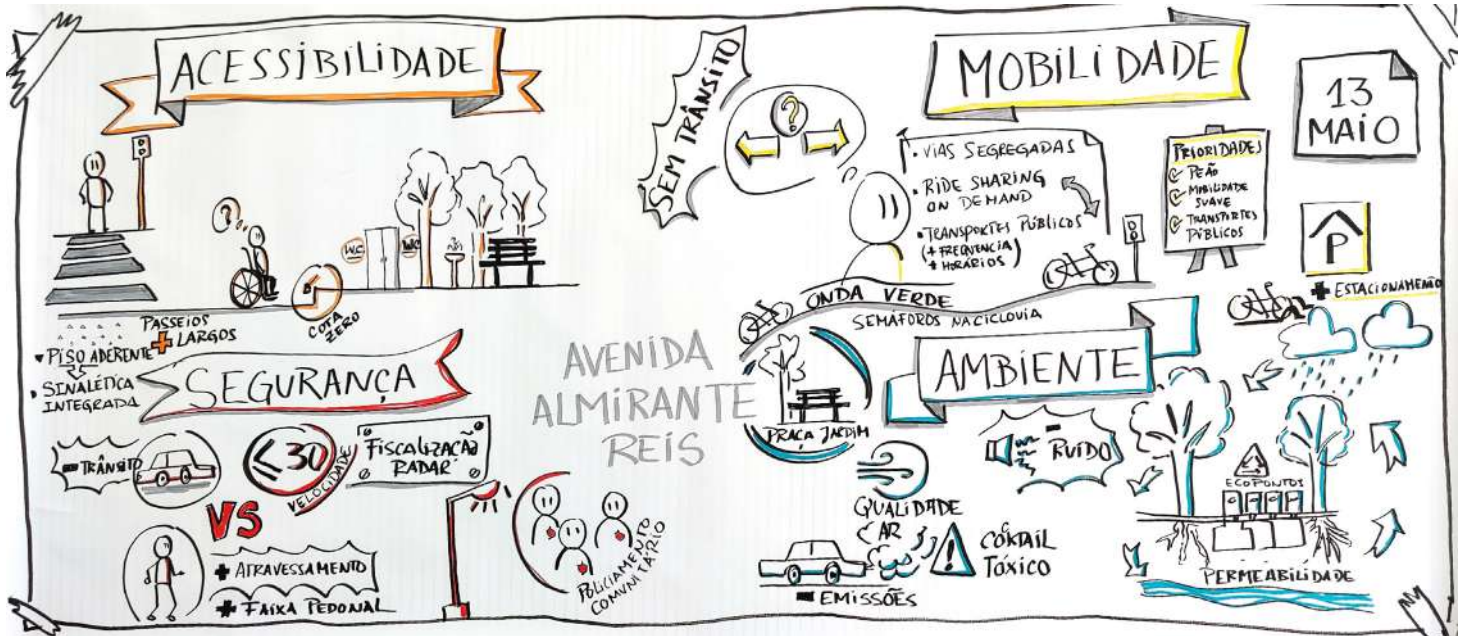 ACESSIBILIDADE
WC
WC
COTA
ZERO
PASSEIOS
+ LARGOS
• PISO ADERENTE
• SINALÉTICA
INTEGRADA
SEGURANÇA
- TRÂNSITO
≤30
VELOCIDADE
FISCALIZAÇÃO
RADAR
VS
+ ATRAVESSAMENTO
+ FAIXA PEDONAL
POLICIAMENTO
COMUNITÁRIO
AVENIDA
ALMIRANTE
REIS
SEM TRÂNSITO
?
MOBILIDADE
• VIAS SEGREGADAS
• RIDE SHARING
ON DEMAND
• TRANSPORTES PÚBLICOS
(+ FREQUENCIA
+ HORÁRIOS)
ONDA VERDE
SEMÁFOROS NA CICLOVIA
PRIORIDADES
PEÃO
MOBILIDADE
SUAVE
TRANSPORTES
PÚBLICOS
13
MAIO
P
+ ESTACIONAMENTO
AMBIENTE
PRAÇA JARDIM
- RUÍDO
QUALIDADE
AR
- EMISSÕES
!
COKTAIL
TÓXICO
ECOPONTOS
PERMEABILIDADE